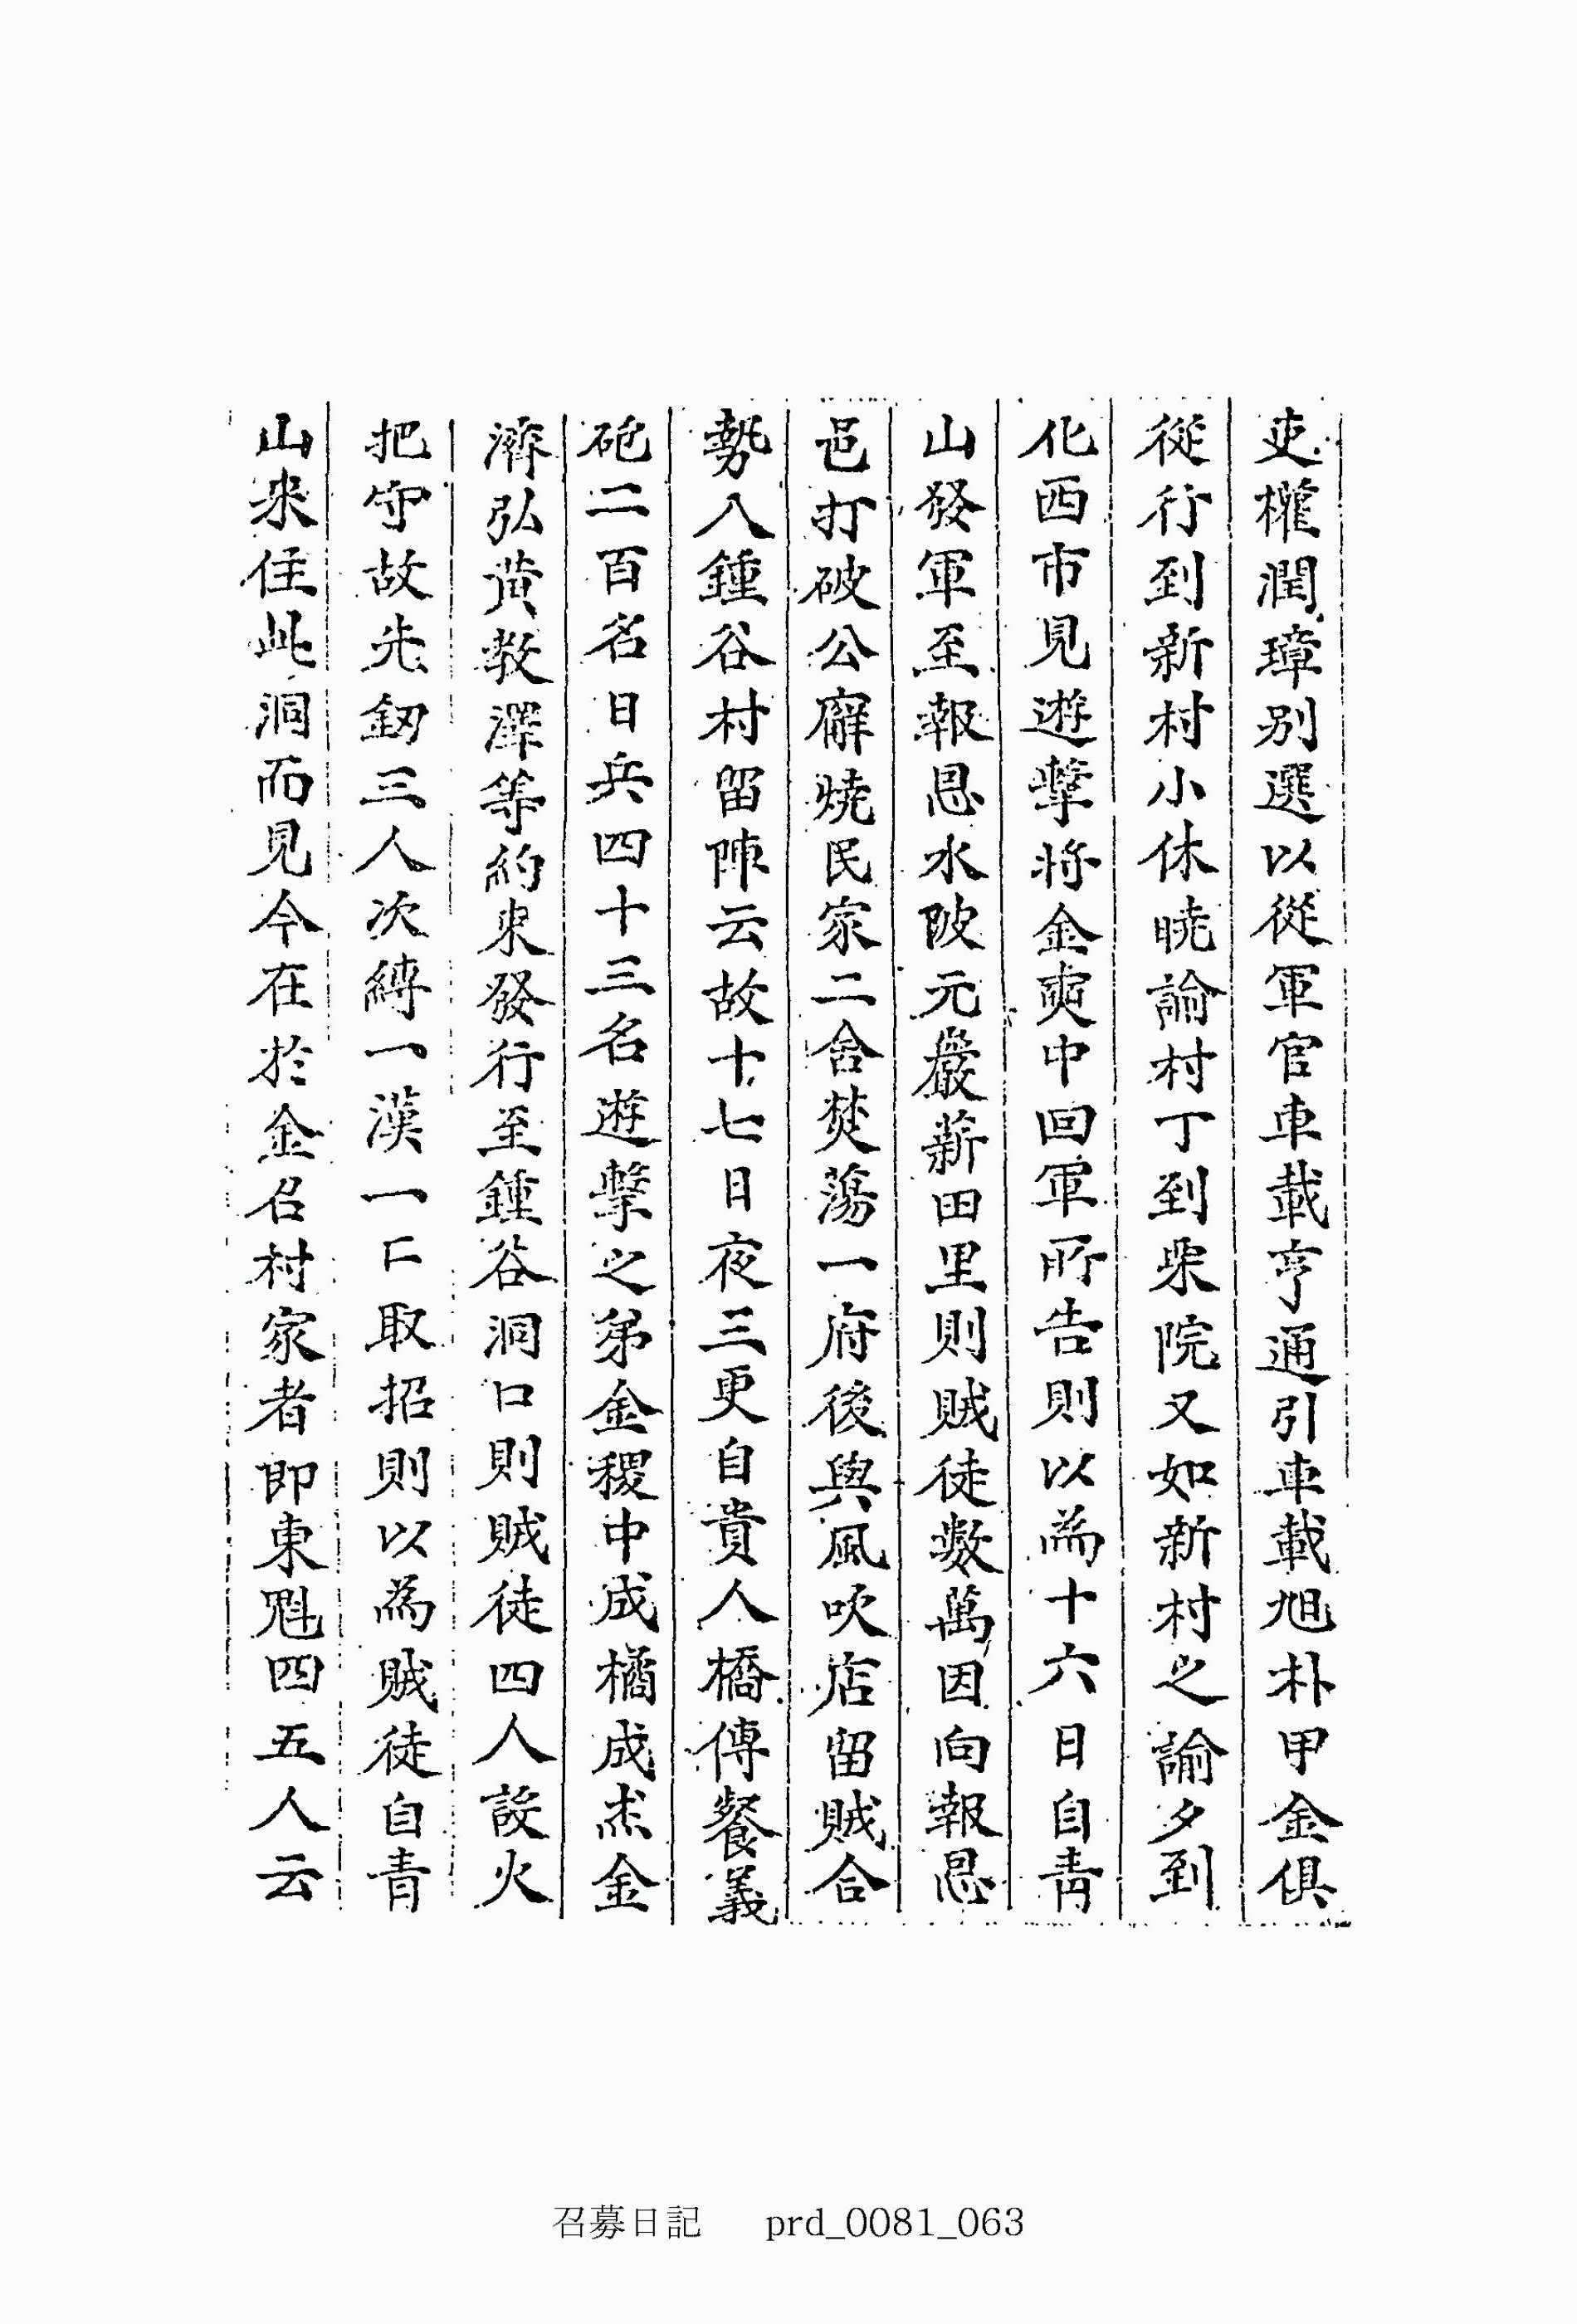 吏權潤璋別選以從軍官車載亨通引車載旭朴甲金俱
從行到新村小休曉諭村丁到柴院又如新村之諭夕到
化西市見遊擊將金奭中回軍所告則以爲十六日自靑
山發軍至報恩水陂元巖薪田里則賊徒數萬因向報恩
邑打破公廨燒民家二舍焚蕩一府後與風吹店留賊合
勢入鍾谷村留陣云故十七日夜三更自貴人橋傳餐義
砲二百名日兵四十三名遊擊之弟金稷中成橘成杰金
濟弘黃敎澤等約束發行至鍾谷洞口則賊徒四人設火
把守故先釰三人次縛一漢一口取招則以爲賊徒自靑
山來住此洞而見今在於金召村家者即東魁四五人云
召募日記 prd_0081_063